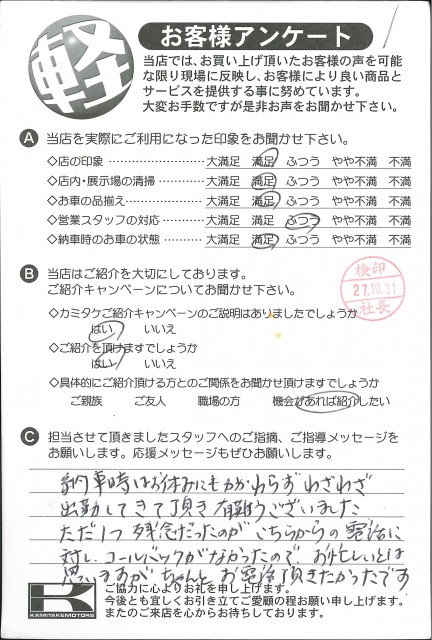 軽
お客様アンケート
当店では、お買い上げ頂いたお客様の声を可能
な限り現場に反映し、お客様により良い商品と
サービスを提供する事に努めています。
大変お手数ですが是非お声をお聞かせ下さい。
A 当店を実際にご利用になった印象をお聞かせ下さい。
◇店の印象 大満足 満足 ふつう やや不満 不満
◇店内・展示場の清掃 大満足 満足 ふつう やや不満 不満
◇お車の品揃え 大満足 満足 ふつう やや不満 不満
◇営業スタッフの対応 大満足 満足 ふつう やや不満 不満
◇納車時のお車の状態 大満足 満足 ふつう やや不満 不満
検印
27.10.31
社長
B 当店はご紹介を大切にしております。
ご紹介キャンペーンについてお聞かせ下さい。
◇カミタケご紹介キャンペーンのご説明はありましたでしょうか
はい いいえ
◇ご紹介を頂けますでしょうか
はい いいえ
◇具体的にご紹介頂ける方とのご関係をお聞かせ頂けますでしょうか
ご親族 ご友人 職場の方 機会があれば紹介したい
C 担当させて頂きましたスタッフへのご指摘、ご指導メッセージを
お願いします。応援メッセージもぜひお願いします。
納車時はお休みにもかかわらずわざわざ
出勤してきて頂き有難うございました
ただ1つ残念だったのがこちらからの電話に
対し、コールバックがなかったので、お忙しいとは
思いますがちゃんとお電話頂きたかったです
K
KAMITAKEMOTORS
ご協力に心よりお礼を申し上げます。
今後とも宜しくお引き立てご愛顧の程お願い申し上げます。
またのご来店を心からお待ちしております。